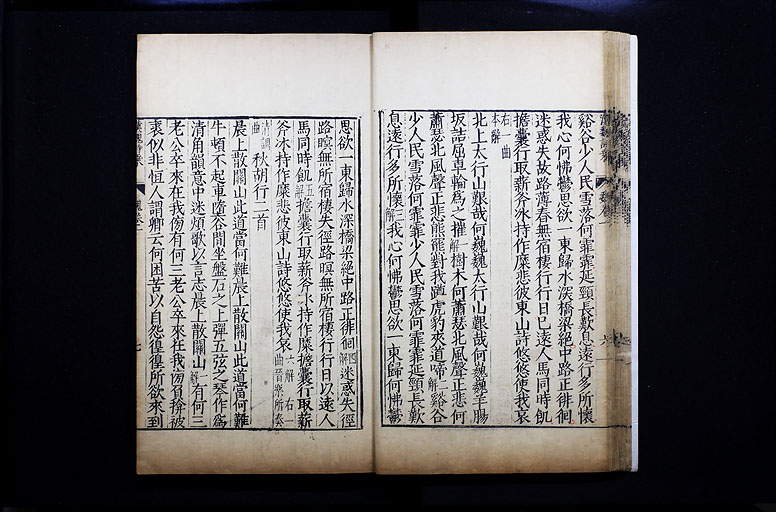 谿谷少人民雪落何霏霏延頸長歎息遠行多所懷
我心何怫鬱思欲一東歸水深橋梁絕中路正徘徊
迷惑失故路薄暮無宿棲行行日已遠人馬同時飢
擔囊行取薪斧冰持作糜悲彼東山詩悠悠使我哀
右一曲
本辭
北上太行山艱哉何巍巍太行山艱哉何巍巍羊腸
坂詰屈車輪為之摧解樹木何蕭瑟北風聲正悲何
蕭瑟北風聲正悲熊羆對我蹲虎豹夾道啼二解谿谷
少人民雪落何霏霏少人民雪落何霏霏延頸長歎
息遠行多所懷三解我心何怫鬱思欲一東歸何怫鬱
思欲一東歸水深橋梁絕中路正徘徊四解迷惑失徑
路暝無所宿棲失徑路暝無所宿棲行行日以遠人
馬同時飢五解擔囊行取薪斧冰持作糜擔囊行取薪
斧冰持作糜悲彼東山詩悠悠使我哀六解 右一曲晉樂所奏
清調曲 秋胡行二首
晨上散關山此道當何難晨上散關山此道當何難
牛頓不起車墮谷間坐盤石之上彈五弦之琴作為
清角韻意中迷煩歌以言志晨上散關山一解有何三
老公卒來在我傍有何三老公卒來在我傍負揜被
裘似非恒人謂卿云何困苦以自怨徨徨所欲來到
七